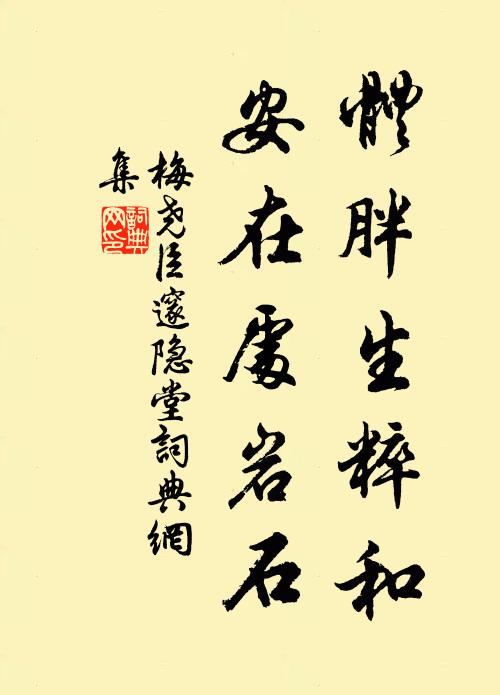 體胖生粹和
安在處岩石
梅尧臣邃隐堂詞典網
集
詞典
网印